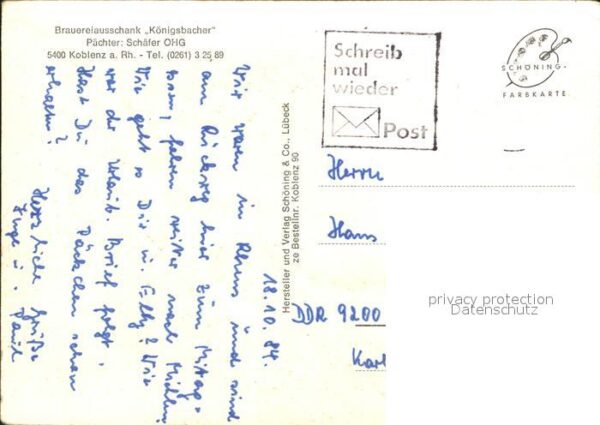 Brauereiausschank „Königsbacher"
Pächter: Schäfer OHG
5400 Koblenz a. Rh. - Tel. (0261) 3 25 89
18.10.84.
Wir waren in Rhens und sind
am Rückweg hier zum Mittag-
essen, fahren weiter nach
Wie geht es Dir u. Elly? Wie
war der Urlaub. Brief folgt.
Hast Du das Päckchen schon
erhalten?
Herzliche Grüße
Inge u. Paul
Hersteller und Verlag Schöning & Co., Lübeck
ze Bestellnr. Koblenz 90
Schreib
mal
wieder
Post
SCHÖNING-
FARBKARTE
Herrn
Hans
DDR 9200
Karl
privacy protection
Datenschutz